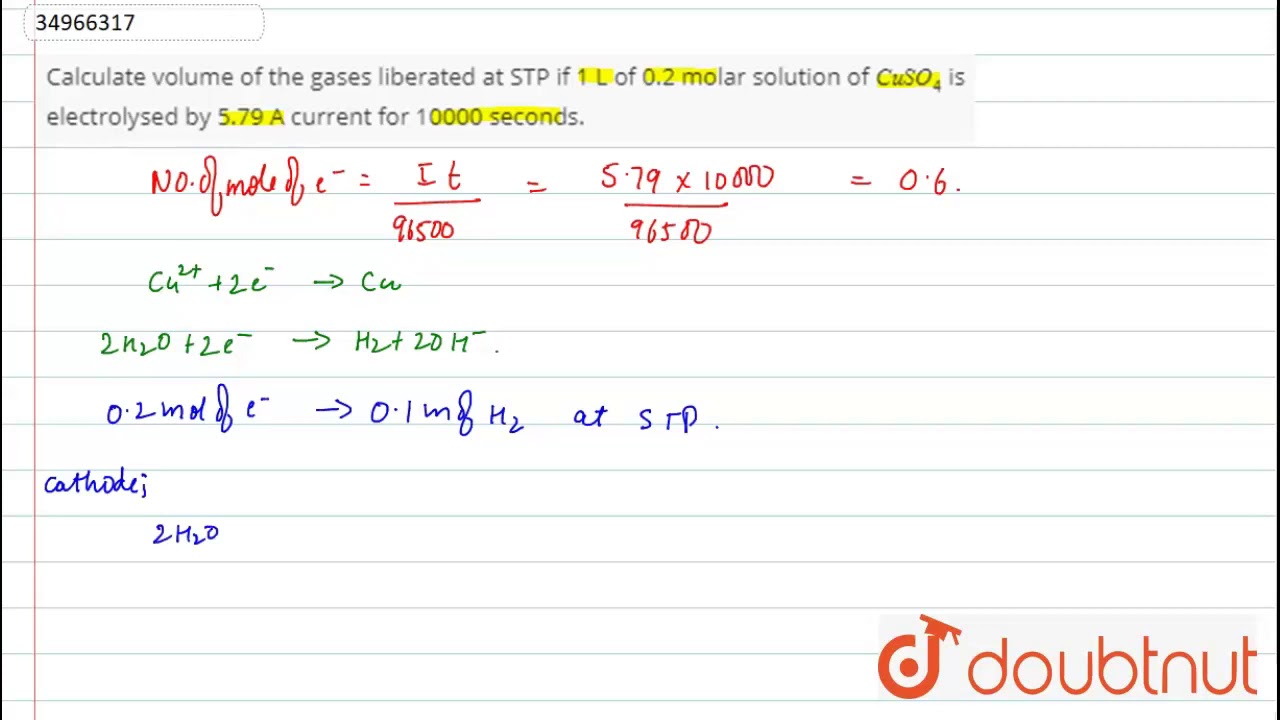 34966317
Calculate volume of the gases liberated at STP if 1 L of 0.2 molar solution of CuSO₄ is
electrolysed by 5.79 A current for 10000 seconds.
NO. of mole of e⁻ = It / 96500 = 5.79 × 10000 / 96500 = 0.6.
Cu²⁺ + 2e⁻ → Cu
2H₂O + 2e⁻ → H₂ + 2OH⁻.
0.2 mol of e⁻ → 0.1 m of H₂ at STP.
cathode;
2H₂O
doubtnut